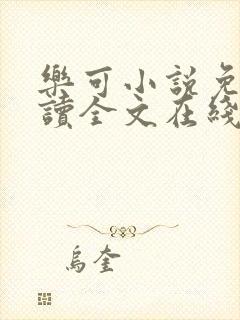 樂可小說免
讀全文在綫
烏奎